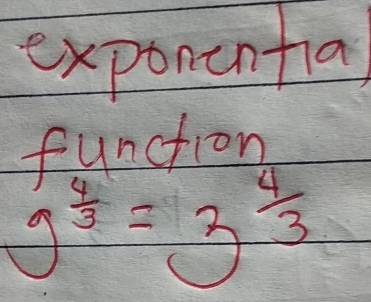 exponential
function
9^{4/3} = 3^{4/3}